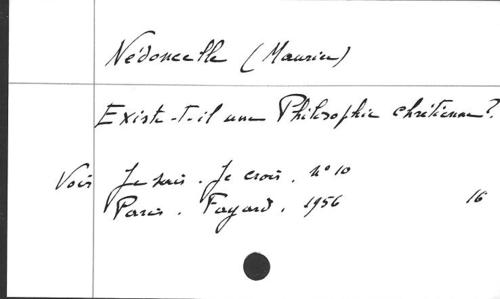 Nédoncelle (Maurice)
Existe-t-il une Philosophie chrétienne?
Voir Je sais. Je crois. n° 10
Paris. Fayard. 1956 16